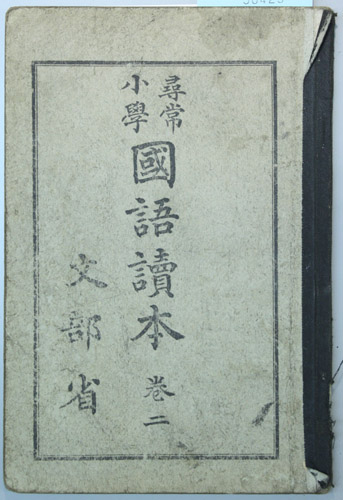 尋常
小學
國語讀本 卷二
文部省